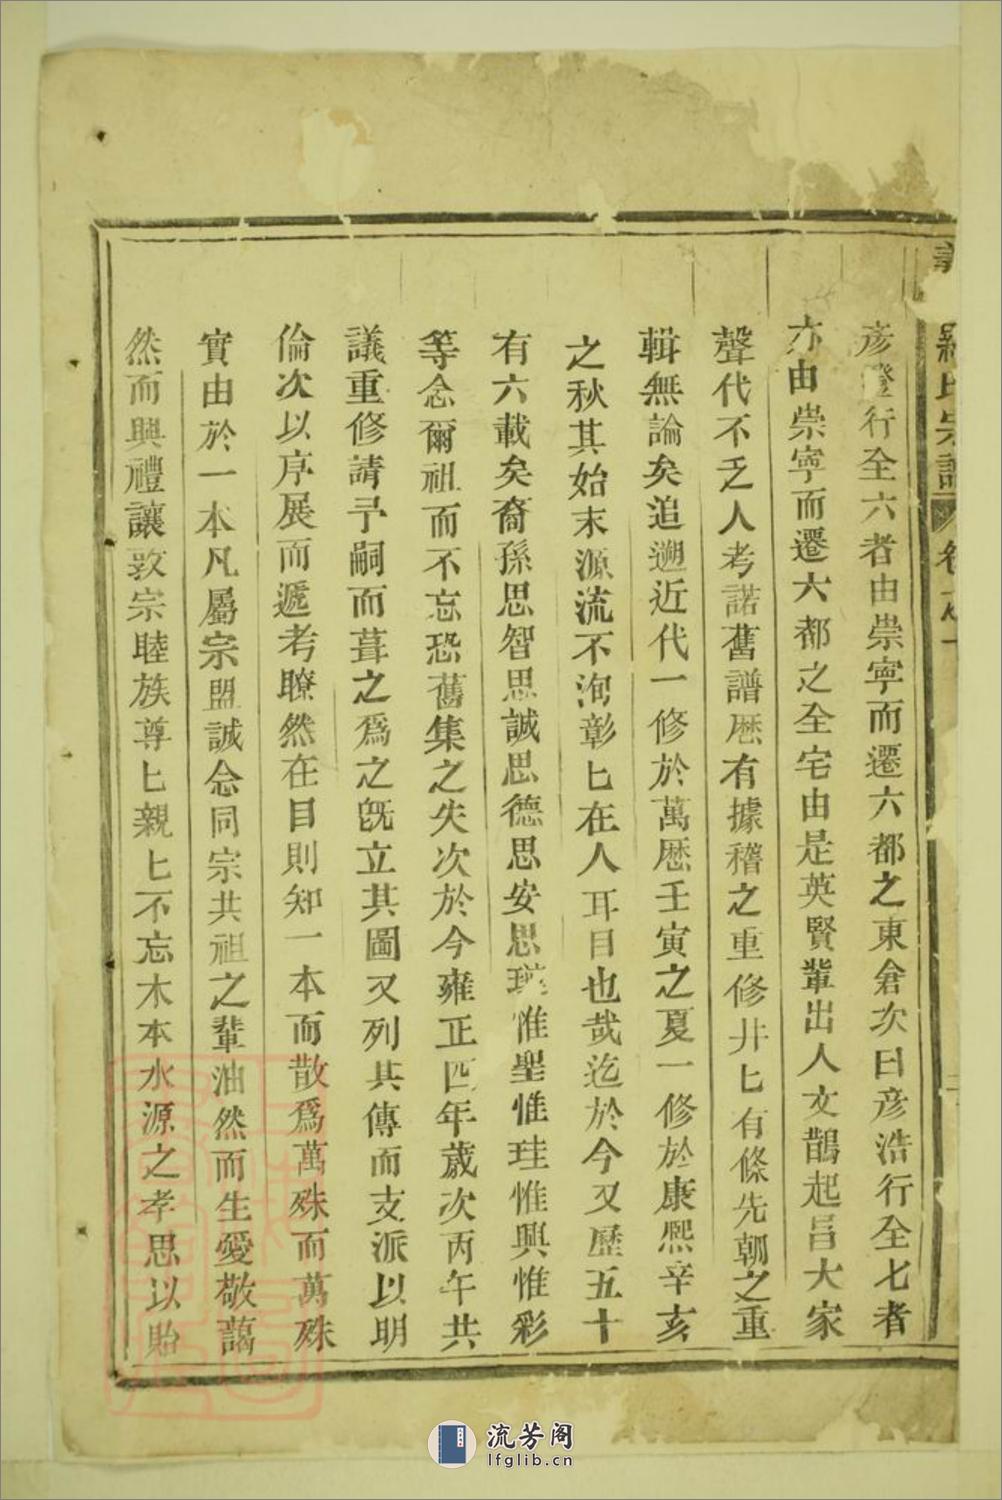 羅氏宗譜 卷之一
彥澄行全六者由崇寧而遷六都之東倉次曰彥浩行全七者
亦由崇寧而遷六都之全宅由是英賢輩出人文鵲起呂大家
聲代不乏人考諾舊譜厯有據稽之重修井匕有條先朝之重
輯無論矣追遡近代一修於萬厯壬寅之夏一修於康熙辛亥
之秋其始末源流不洵彰匕在人耳目也哉迄於今又歷五十
有六載矣裔孫思智思誠思德思安思 惟聖惟珪惟興惟彩
等念爾祖而不忘恐舊集之失次於今雍正四年歲次丙午共
議重修請予嗣而葺之爲之旣立其圖又列其傳而支派以明
倫次以序展而遞考瞭然在目則知一本而散爲萬殊而萬殊
實由於一本凡屬宗盟誠念同宗共祖之輩油然而生愛敬藹
然而興禮讓敦宗睦族尊匕親匕不忘木本水源之孝思以貽
流芳阁
lfglib.cn